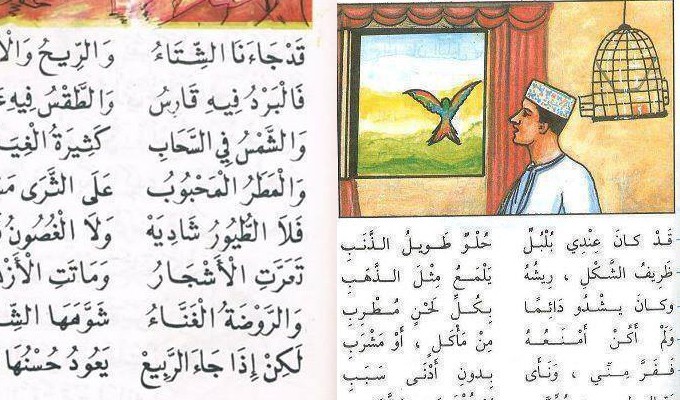 قَدْ جَاءَنَا الشِّتَاءُ وَالرِّيحُ
فَالْبَرْدُ فِيهِ قَارِسُ وَالطَّقْسُ فِيهِ
وَالشَّمْسُ فِي السَّحَابِ كَثِيرَةُ
وَالْمَطَرُ الْمَحْبُوبُ عَلَى الثَّرَى
فَلَا الطُّيُورُ شَادِيَهْ وَلَا الْغُصُونُ
تَعَرَّتِ الْأَشْجَارُ وَمَاتَتِ
وَالرَّوْضَةُ الْغَنَّاءُ شَوَّهَهَا
لَكِنْ إِذَا جَاءَ الرَّبِيعْ يَعُودُ حُسْنُهَا
قَدْ كَانَ عِنْدِي بُلْبُلٌ حُلْوٌ طَوِيلُ الذَّنَبِ
ظَرِيفُ الشَّكْلِ ، رِيشُهُ يَلْمَعُ مِثْلَ الذَّهَبِ
وَكَانَ يَشْدُو دَائِمًا بِكُلِّ لَحْنٍ مُطْرِبِ
وَلَمْ أَكُنْ أَمْنَعُهُ مِنْ مَأْكَلٍ ، أَوْ مَشْرَبِ
فَفَرَّ مِنِّي ، وَنَأَى بِدونِ أَدْنَى سَبَبِ